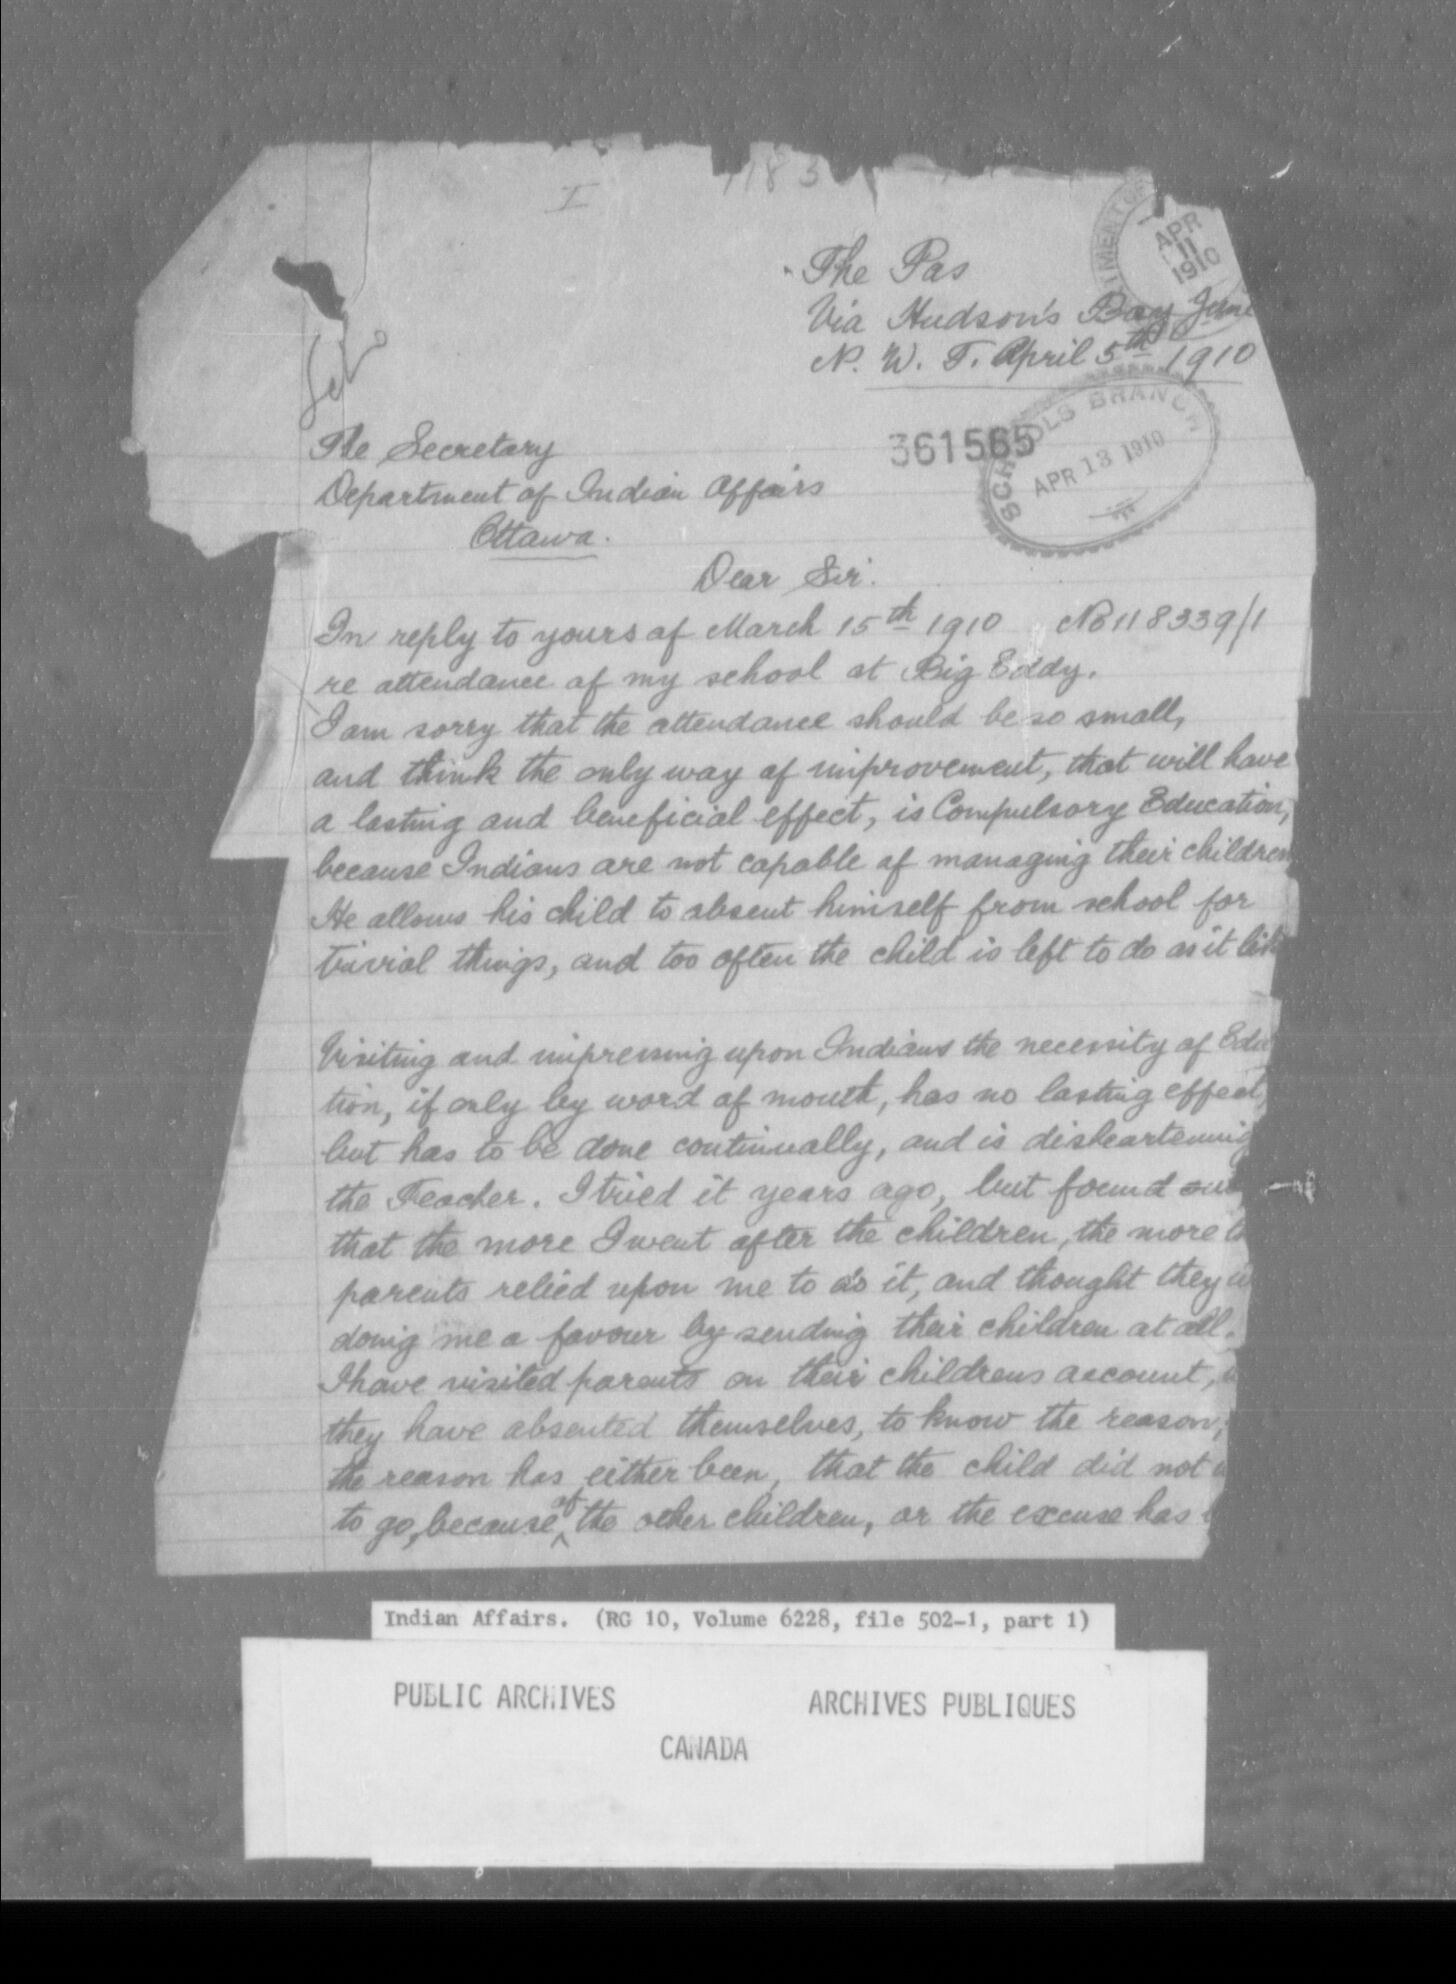 I
1183
The Pas
Via Hudson's Bay Junc
N. W. T. April 5th 1910
APR
11
1910
361565
SCHOOLS BRANCH
APR 13 1910
The Secretary
Department of Indian Affairs
Ottawa.
Dear Sir.
In reply to yours of March 15th 1910 No 118339/1
re attendance of my school at Big Eddy.
I am sorry that the attendance should be so small,
and think the only way of improvement, that will have
a lasting and beneficial effect, is Compulsory Education,
because Indians are not capable of managing their children
He allows his child to absent himself from school for
trivial things, and too often the child is left to do as it lik
Visiting and impressing upon Indians the necessity of Edu
tion, if only by word of mouth, has no lasting effect,
but has to be done continually, and is disheartening
the Teacher. I tried it years ago, but found out
that the more I went after the children, the more th
parents relied upon me to do it, and thought they w
doing me a favour by sending their children at all.
I have visited parents on their childrens account,
they have absented themselves, to know the reason,
the reason has either been, that the child did not w
to go, because of the other children, or the excuse has
Indian Affairs. (RG 10, Volume 6228, file 502-1, part 1)
PUBLIC ARCHIVES ARCHIVES PUBLIQUES
CANADA